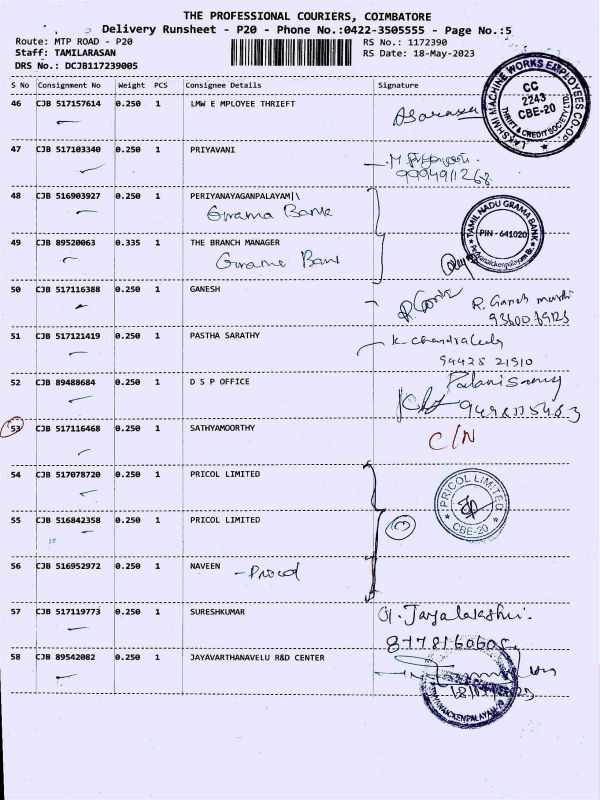 THE PROFESSIONAL COURIERS, COIMBATORE
Delivery Runsheet - P20 - Phone No.:0422-3505555 - Page No.:5
Route: MTP ROAD - P20 RS No.: 1172390
Staff: TAMILARASAN RS Date: 18-May-2023
DRS No.: DCJB117239005
S No Consignment No Weight PCS Consignee Details Signature
46 CJB 517157614 0.250 1 LMW E MPLOYEE THRIEFT
LAKSHMI MACHINE WORKS EMPLOYEES CO-OP
THRIFT & CREDIT SOCIETY LTD
CC
2243
CBE-20
47 CJB 517103340 0.250 1 PRIYAVANI
9994911268
48 CJB 516903927 0.250 1 PERIYANAYAGANPALAYAM|\
Grama Bank
TAMIL NADU GRAMA BANK
PIN - 641020
49 CJB 89520063 0.335 1 THE BRANCH MANAGER
Grama Bank
50 CJB 517116388 0.250 1 GANESH
R. Ganesh
51 CJB 517121419 0.250 1 PASTHA SARATHY
K. Chandra
94428 21510
52 CJB 89488684 0.250 1 D S P OFFICE
Palanisamy
53 CJB 517116468 0.250 1 SATHYAMOORTHY C/N
54 CJB 517078720 0.250 1 PRICOL LIMITED
PRICOL LIMITED
CBE-20
55 CJB 516842358 0.250 1 PRICOL LIMITED
56 CJB 516952972 0.250 1 NAVEEN - Pricol
57 CJB 517119773 0.250 1 SURESHKUMAR
Jayalakshmi
58 CJB 89542082 0.250 1 JAYAVARTHANAVELU R&D CENTER